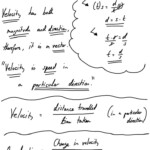 Velocity has both
magnitude and direction,
therefore, it is a vector.
"Velocity is speed in
a particular direction."
d = s · t
Velocity = distance travelled / time taken (in a particular direction)
Change in velocity